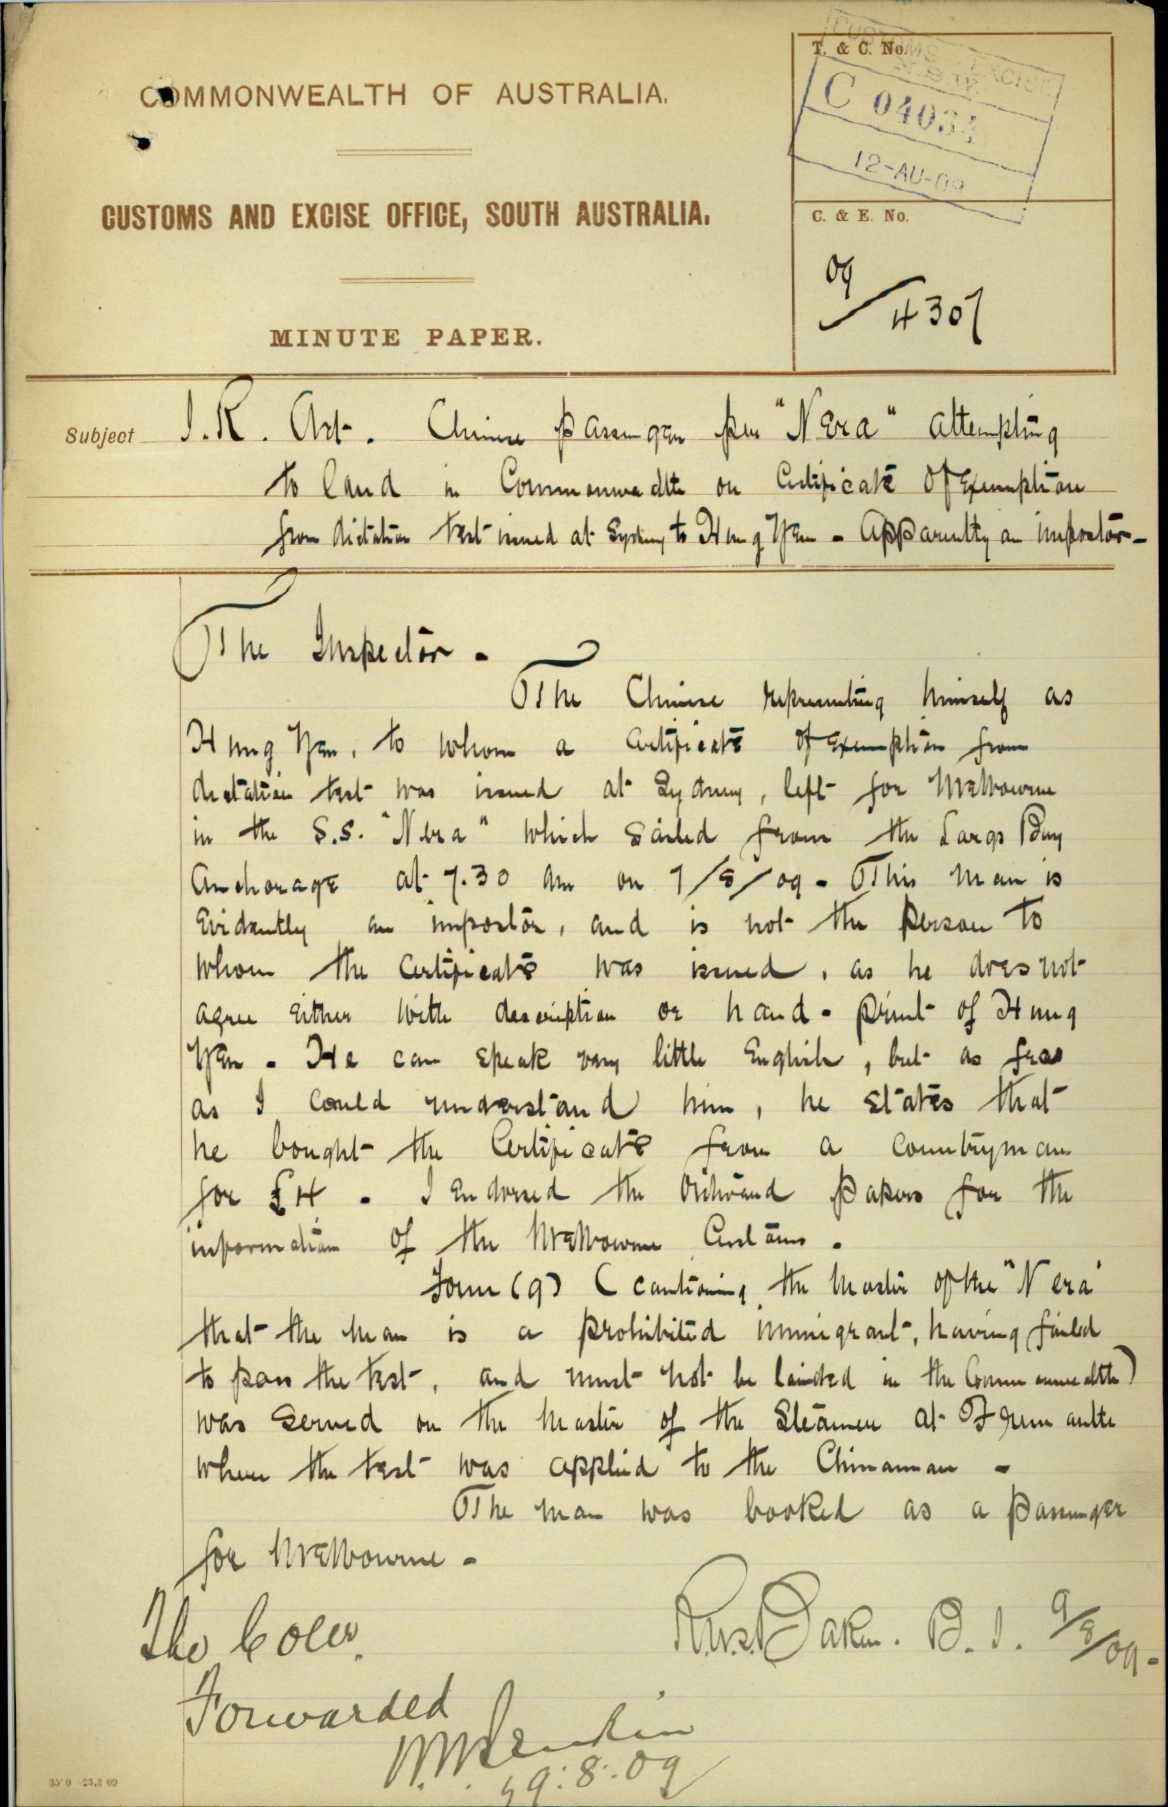 COMMONWEALTH OF AUSTRALIA.
CUSTOMS AND EXCISE OFFICE, SOUTH AUSTRALIA.
MINUTE PAPER.
T. & C. No.
CUSTOMS & EXCISE
N.S.W.
C 04034
12-AU-09
C. & E. No.
09/4307
Subject I.R. Act. Chinese passenger per "Nera" attempting
to land in Commonwealth on Certificate of Exemption
from dictation test issued at Sydney to Hung Yen - Apparently an impostor -
The Inspector -
The Chinese representing himself as
Hung Yen, to whom a Certificate of Exemption from
dictation test was issued at Sydney, left for Melbourne
in the S.S. "Nera" which sailed from the Largs Bay
Anchorage at 7.30 am on 7/8/09 - This man is
Evidently an impostor, and is not the person to
whom the Certificate was issued, as he does not
agree either with description or hand-print of Hung
Yen - He can speak very little English, but as far
as I could understand him, he states that
he bought the Certificate from a Countryman
for £4 - I endorsed the Outward papers for the
information of the Melbourne Customs.
Form (9) (cautioning the Master of the "Nera"
that the man is a prohibited immigrant, having failed
to pass the test, and must not be landed in the Commonwealth)
was served on the Master of the Steamer at Fremantle
where the test was applied to the Chinaman -
The man was booked as a passenger
for Melbourne -
Baker. B.I. 9/8/09 -
The Coller.
Forwarded
9:8:09